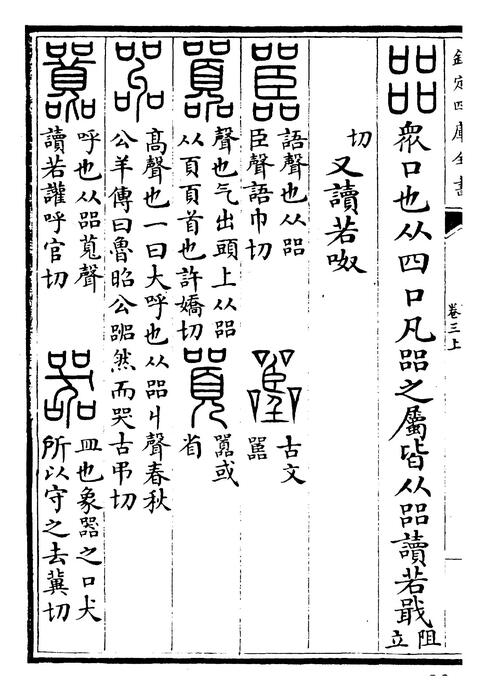 欽定四庫全書
卷三上
㗊衆口也从四口凡㗊之屬皆从㗊讀若戢阻立
切又讀若呶
嚚語聲也从㗊
臣聲語巾切
古文
嚚
囂聲也气出頭上从㗊
从頁頁首也許嬌切
囂或
省
嘂髙聲也一曰大呼也从㗊丩聲春秋
公羊傳曰魯昭公嘂然而哭古弔切
呼也从㗊萈聲
讀若讙呼官切
器皿也象器之口犬
所以守之去冀切